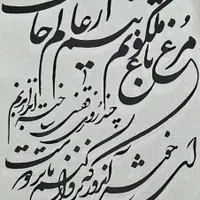 مرغ باغ ملکوتم نیم از عالم خاک
چند روزی قفسی ساخته اند از بدنم
ای خوش آنروز که پرواز کنم تا بر دوست